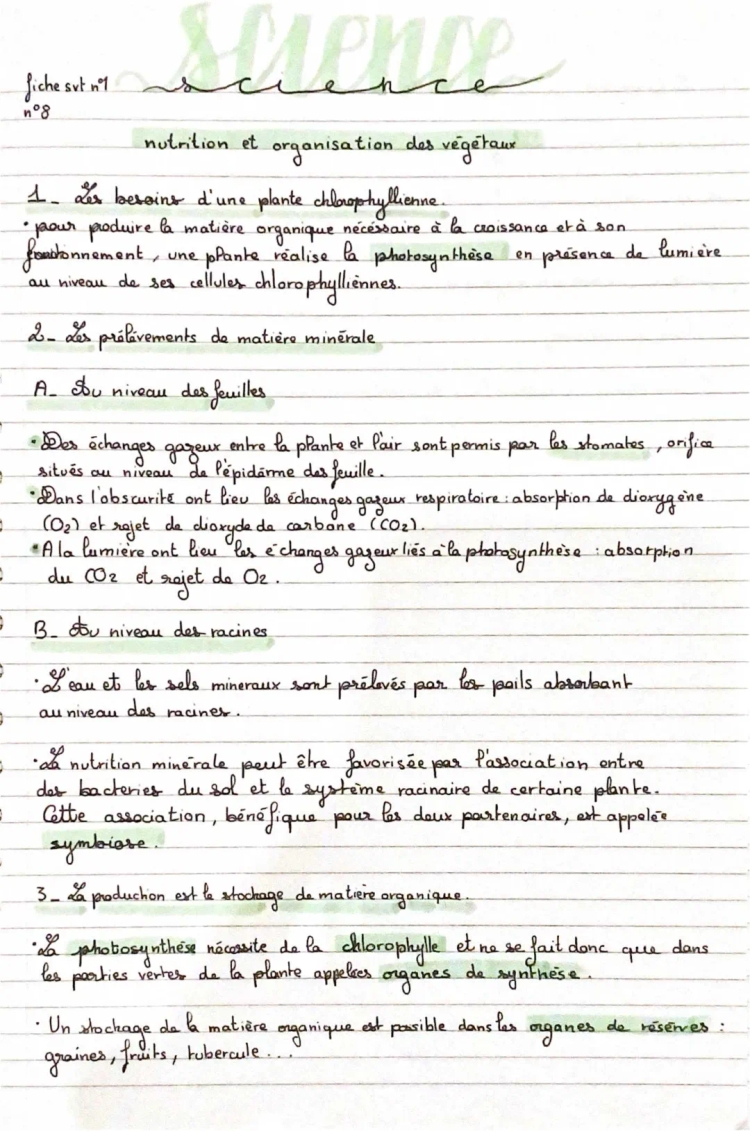 science
fiche svt n°1 science
n°8
nutrition et organisation des végétaux
1_ Les besoins d'une plante chlorophyllienne.
• pour produire la matière organique nécéssaire à la croissance et à son
fonctionnement, une plante réalise la photosynthèse en présence de lumière
au niveau de ses cellules chlorophylliènnes.
2_ Les prélèvements de matière minérale
A_ Au niveau des feuilles
• Des échanges gazeux entre la plante et l'air sont permis par les stomates, orifice
situés au niveau de l'épidèrme des feuille.
• Dans l'obscurité ont lieu les échanges gazeux respiratoire : absorption de dioxygène
(O2) et rejet de dioxyde de carbone (CO2).
• A la lumière ont lieu les échanges gazeux liés à la photosynthèse : absorption
du CO2 et rejet de O2.
B_ Au niveau des racines
• L'eau et les sels mineraux sont prélevés par les poils absorbant
au niveau des racines.
• La nutrition minérale peut être favorisée par l'association entre
des bacteries du sol et le système racinaire de certaine plante.
Cette association, bénéfique pour les deux partenaires, est appelée
symbiose.
3_ La production est le stockage de matière organique.
• La photosynthèse nécessite de la chlorophylle et ne se fait donc que dans
les parties vertes de la plante appelées organes de synthèse.
• Un stockage de la matière organique est possible dans les organes de réserves :
graines, fruits, tubercule...